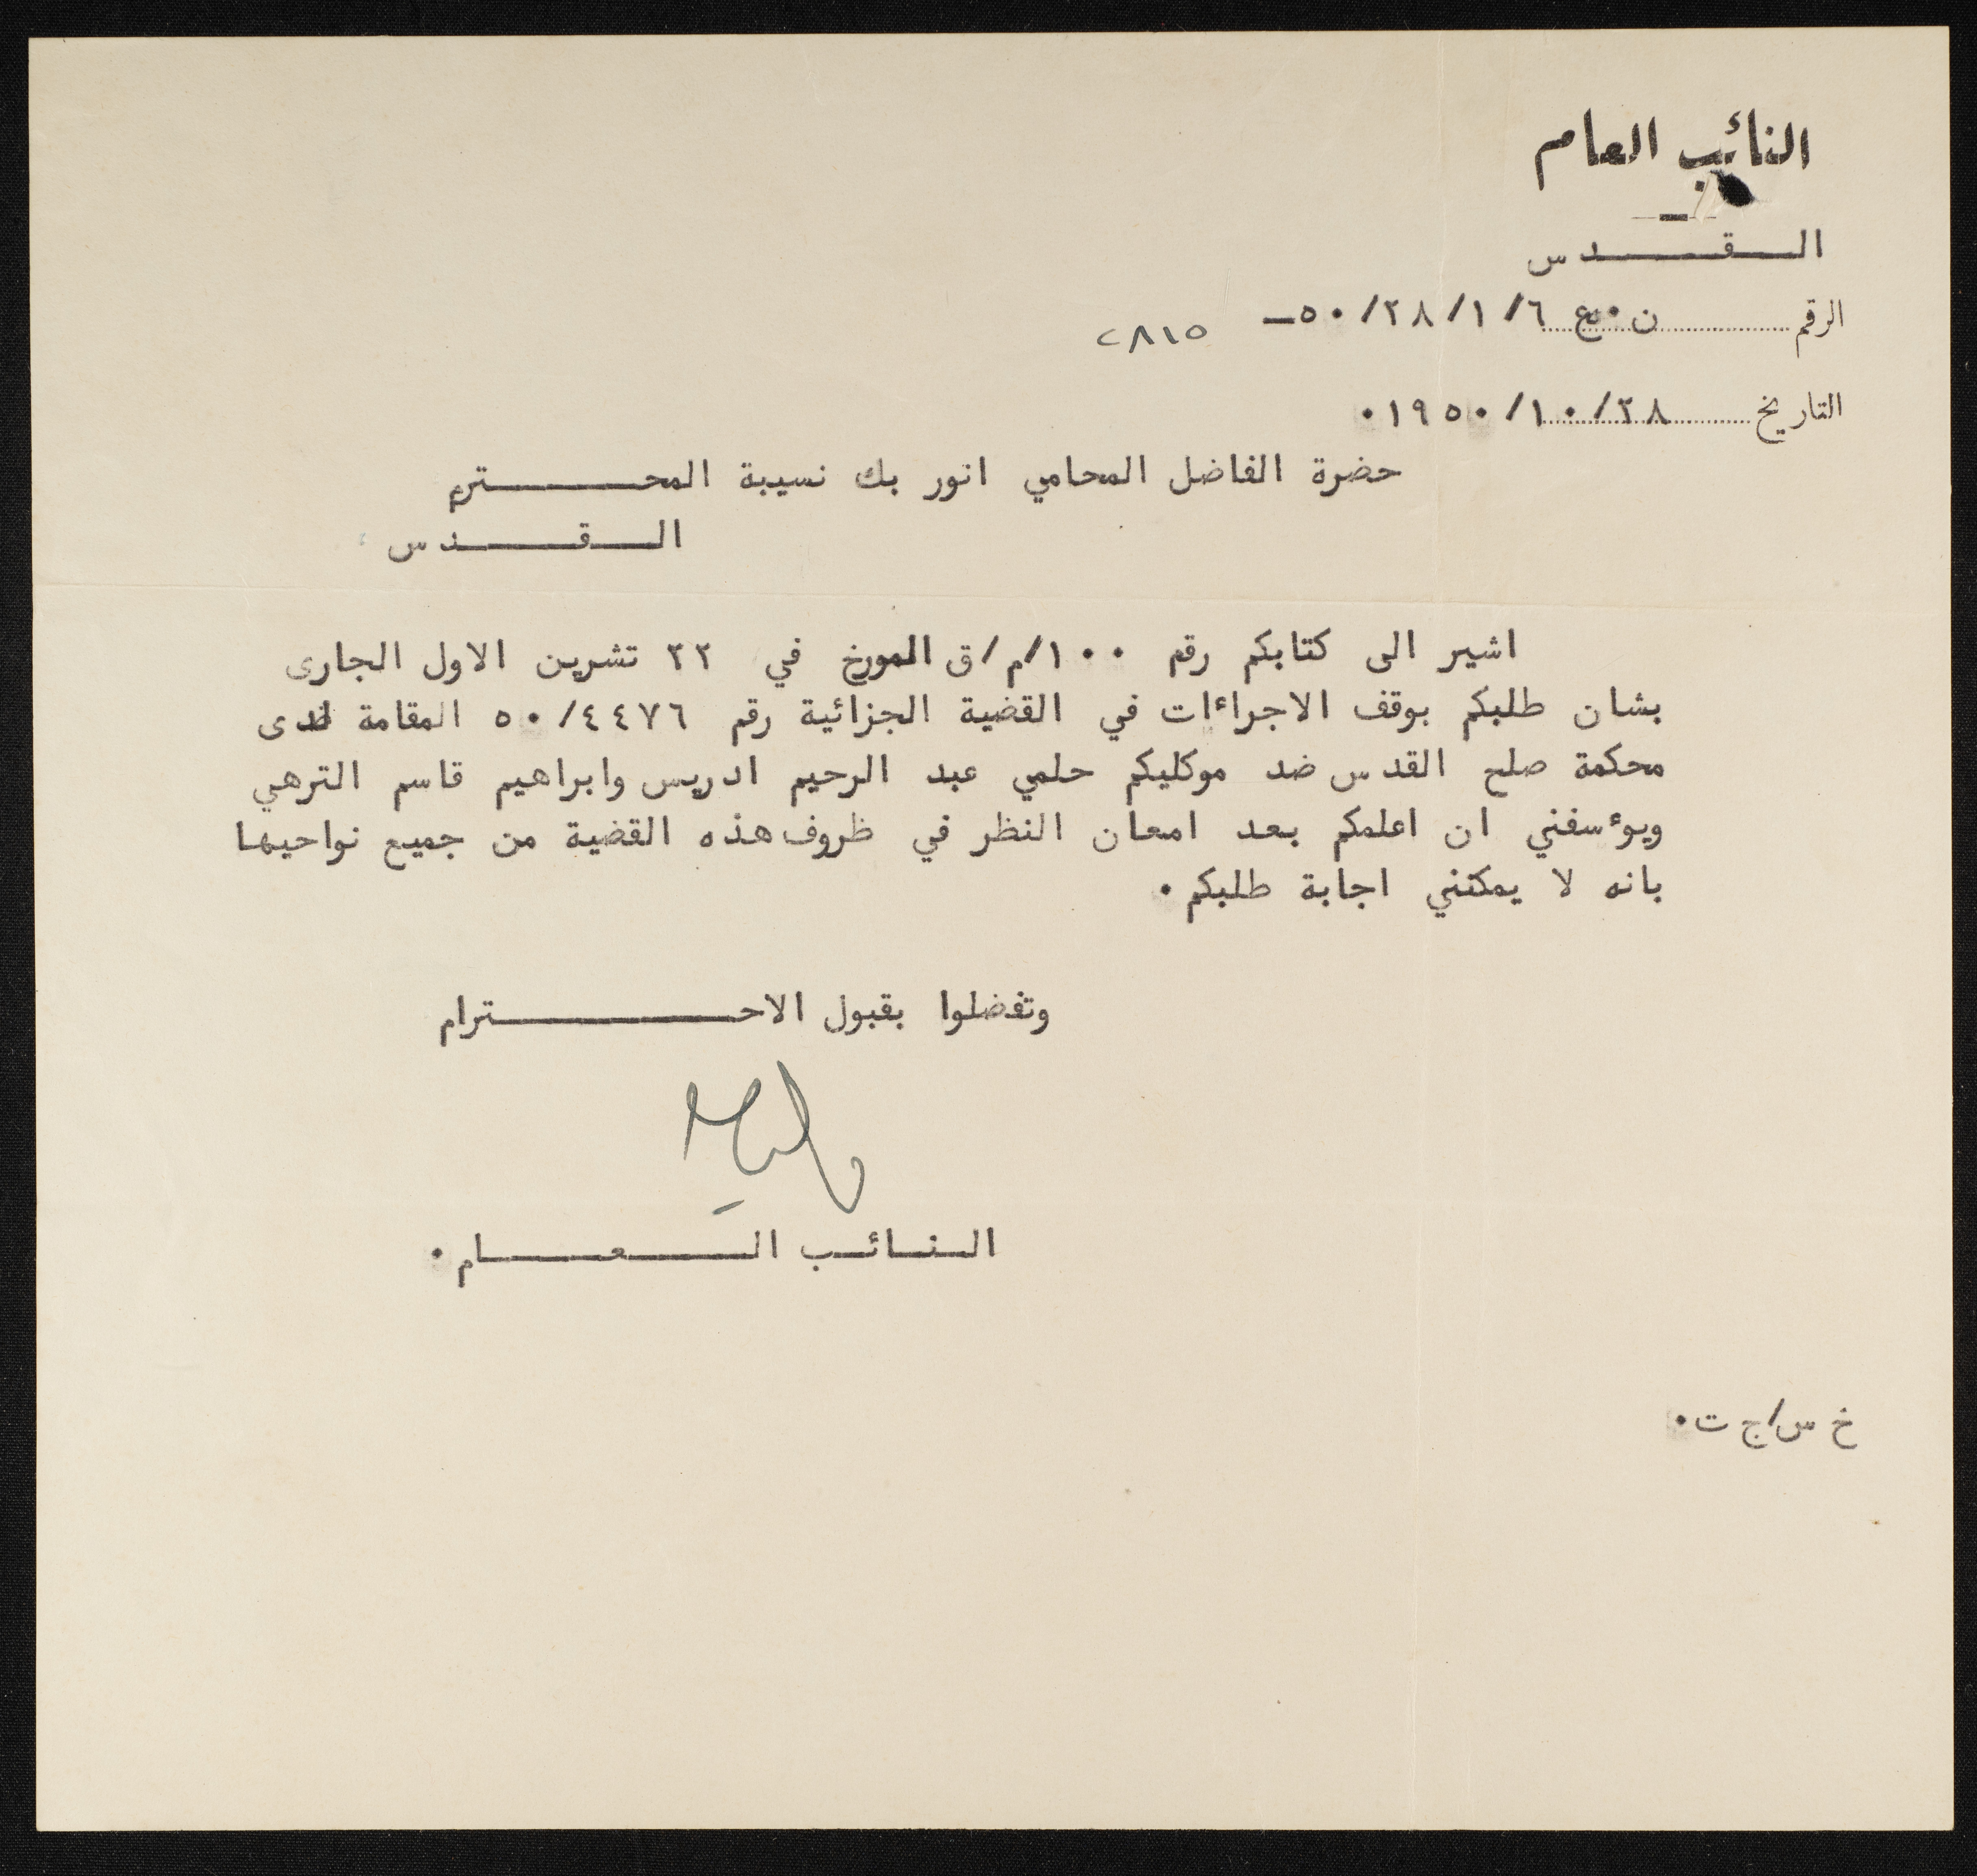 النائب العام
القدس
الرقم ن٠ع ٦/١/٢٨/٥٠ــ ٢٨١٥
التاريخ ٢٨/١٠/١٩٥٠٠
حضرة الفاضل المحامي انور بك نسيبة المحترم
القدس
اشير الى كتابكم رقم ١٠٠/م/ق المورخ في ٢٢ تشرين الاول الجارى
بشان طلبكم بوقف الاجراءات في القضية الجزائية رقم ٥٠/٤٤٧٦ المقامة لدى
محكمة صلح القدس ضد موكليكم حلمي عبد الرحيم ادريس وابراهيم قاسم الترهي
ويوءسفني ان اعلمكم بعد امعان النظر في ظروف هذه القضية من جميع نواحيها
بانه لا يمكنني اجابة طلبكم٠
وتفضلوا بقبول الاحترام
النائب العام٠
خ س/ج ت٠